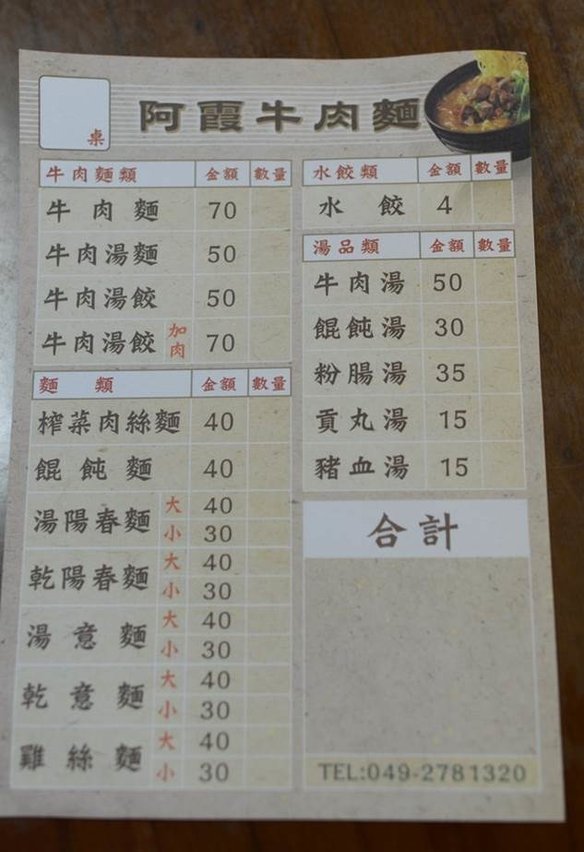 桌
阿霞牛肉麵
牛肉麵類 金額 數量
牛肉麵 70
牛肉湯麵 50
牛肉湯餃 50
牛肉湯餃 加肉 70
麵類 金額 數量
榨菜肉絲麵 40
餛飩麵 40
湯陽春麵 大 40
小 30
乾陽春麵 大 40
小 30
湯意麵 大 40
小 30
乾意麵 大 40
小 30
雞絲麵 大 40
小 30
水餃類 金額 數量
水餃 4
湯品類 金額 數量
牛肉湯 50
餛飩湯 30
粉腸湯 35
貢丸湯 15
豬血湯 15
合計
TEL:049-2781320